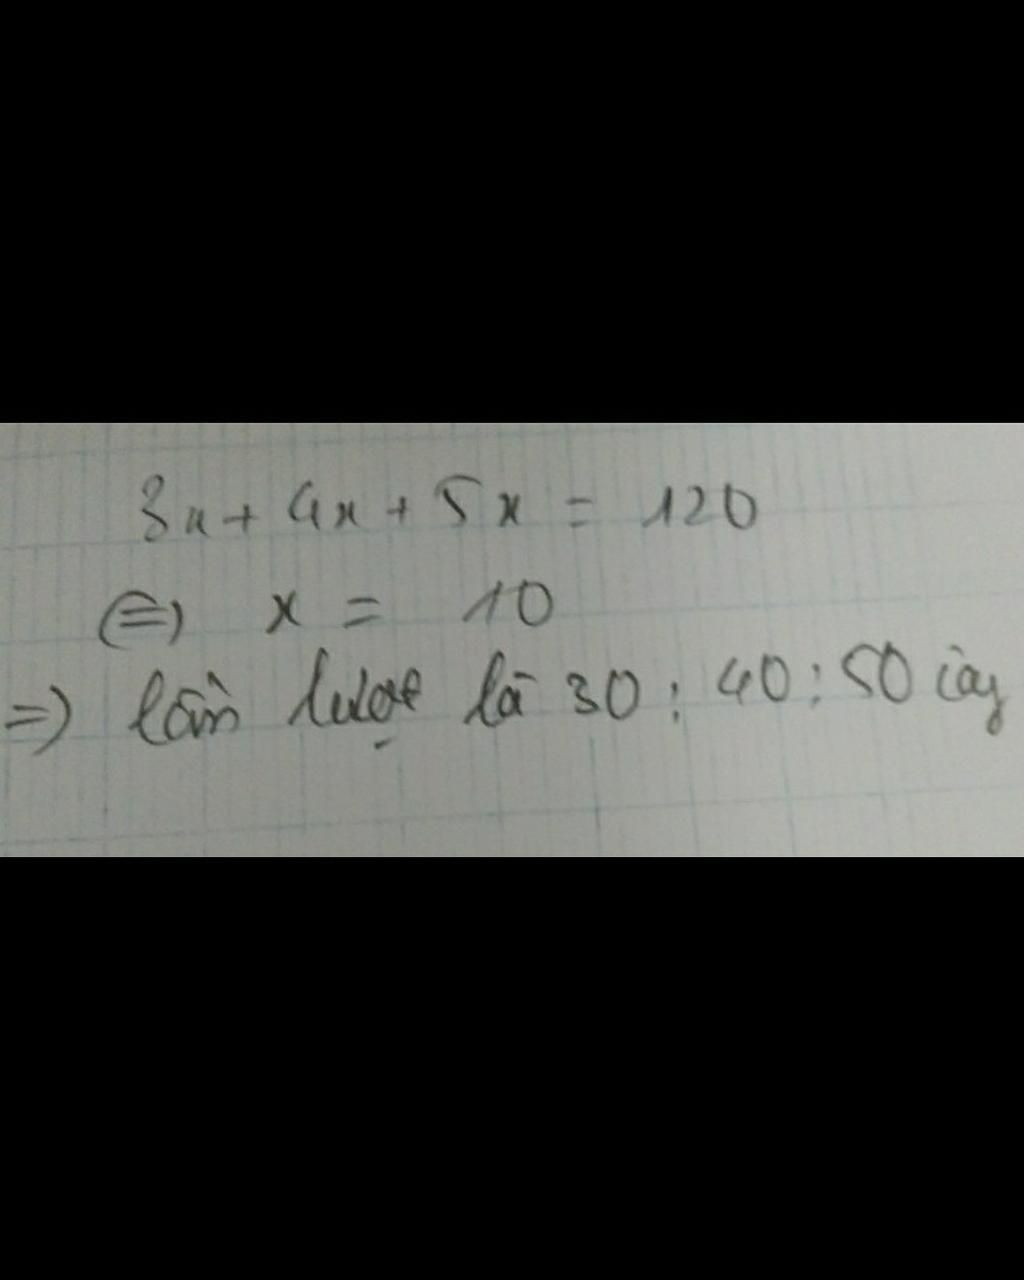 3x + 4x + 5x = 120
<=> x = 10
=> lần lượt là 30 : 40 : 50 cây